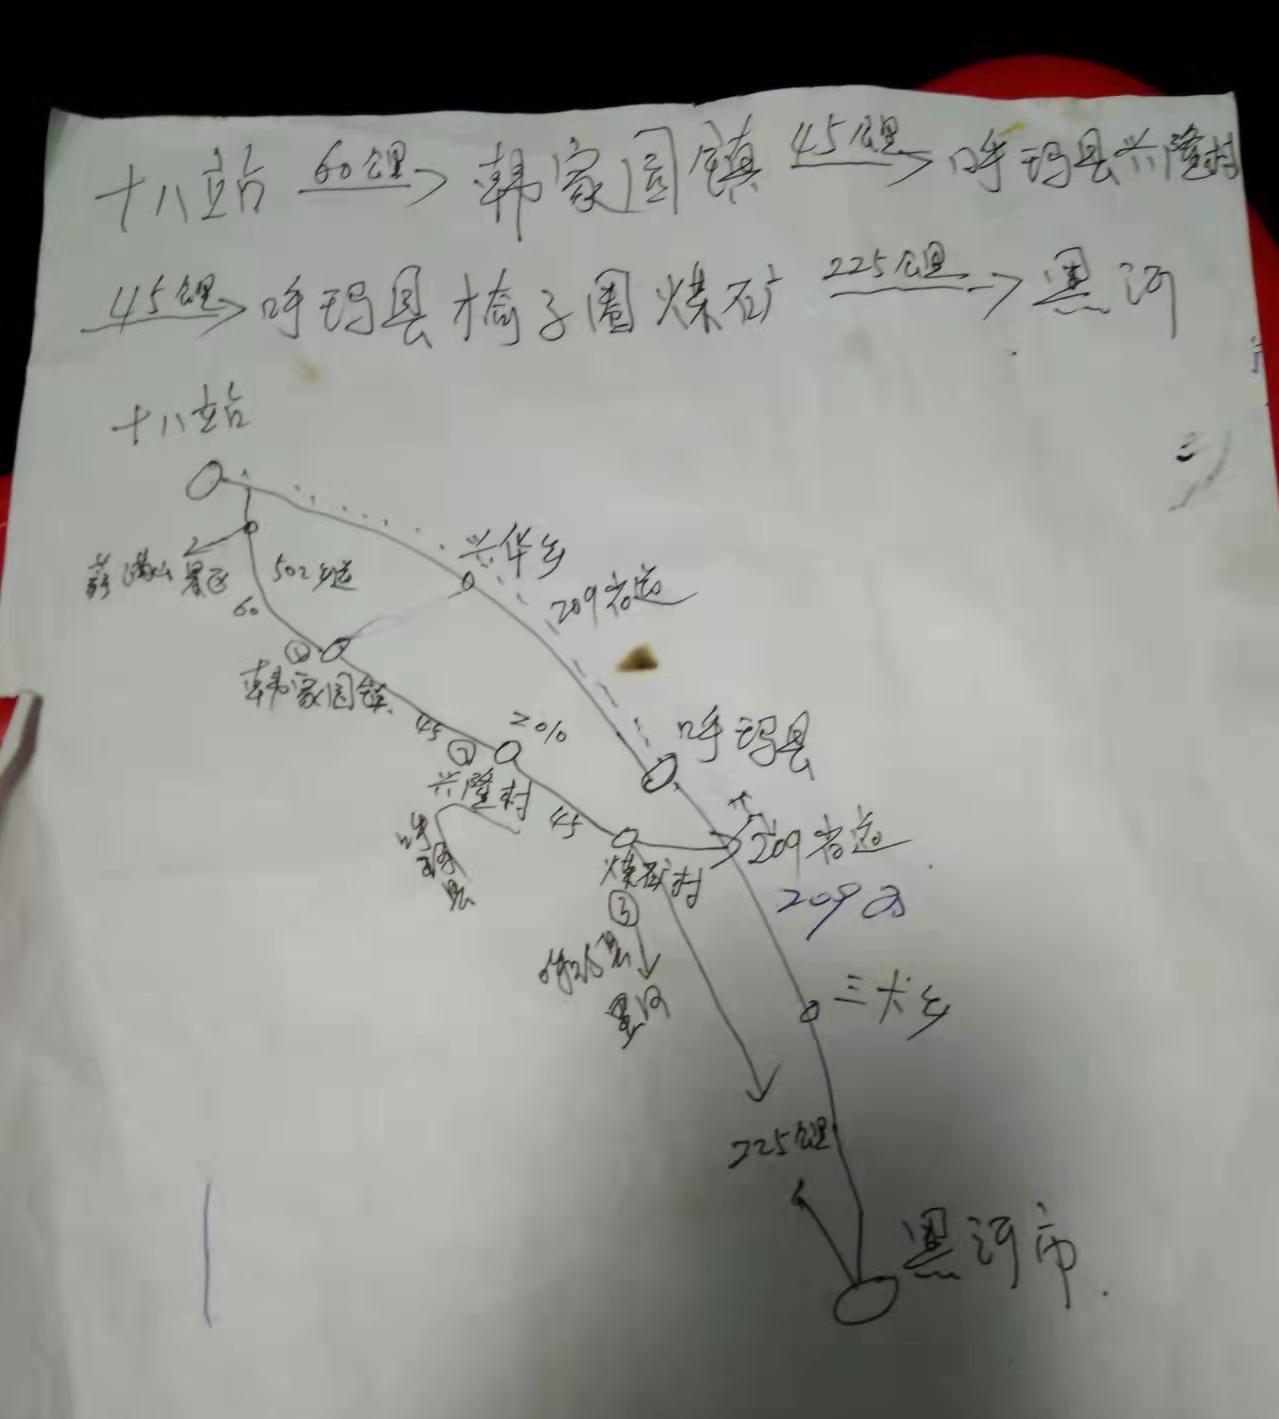 十八站 60公里→ 韩家园镇 45公里→ 呼玛县兴隆村
45公里→ 呼玛县椅子圈煤矿 225公里→ 黑河
十八站
兴华乡
502乡道
209省道
60
① 韩家园镇
45
20%
呼玛县
② 兴隆村
45
呼玛县
209省道
煤矿村
209
③
黑河
三卡乡
225公里
黑河市